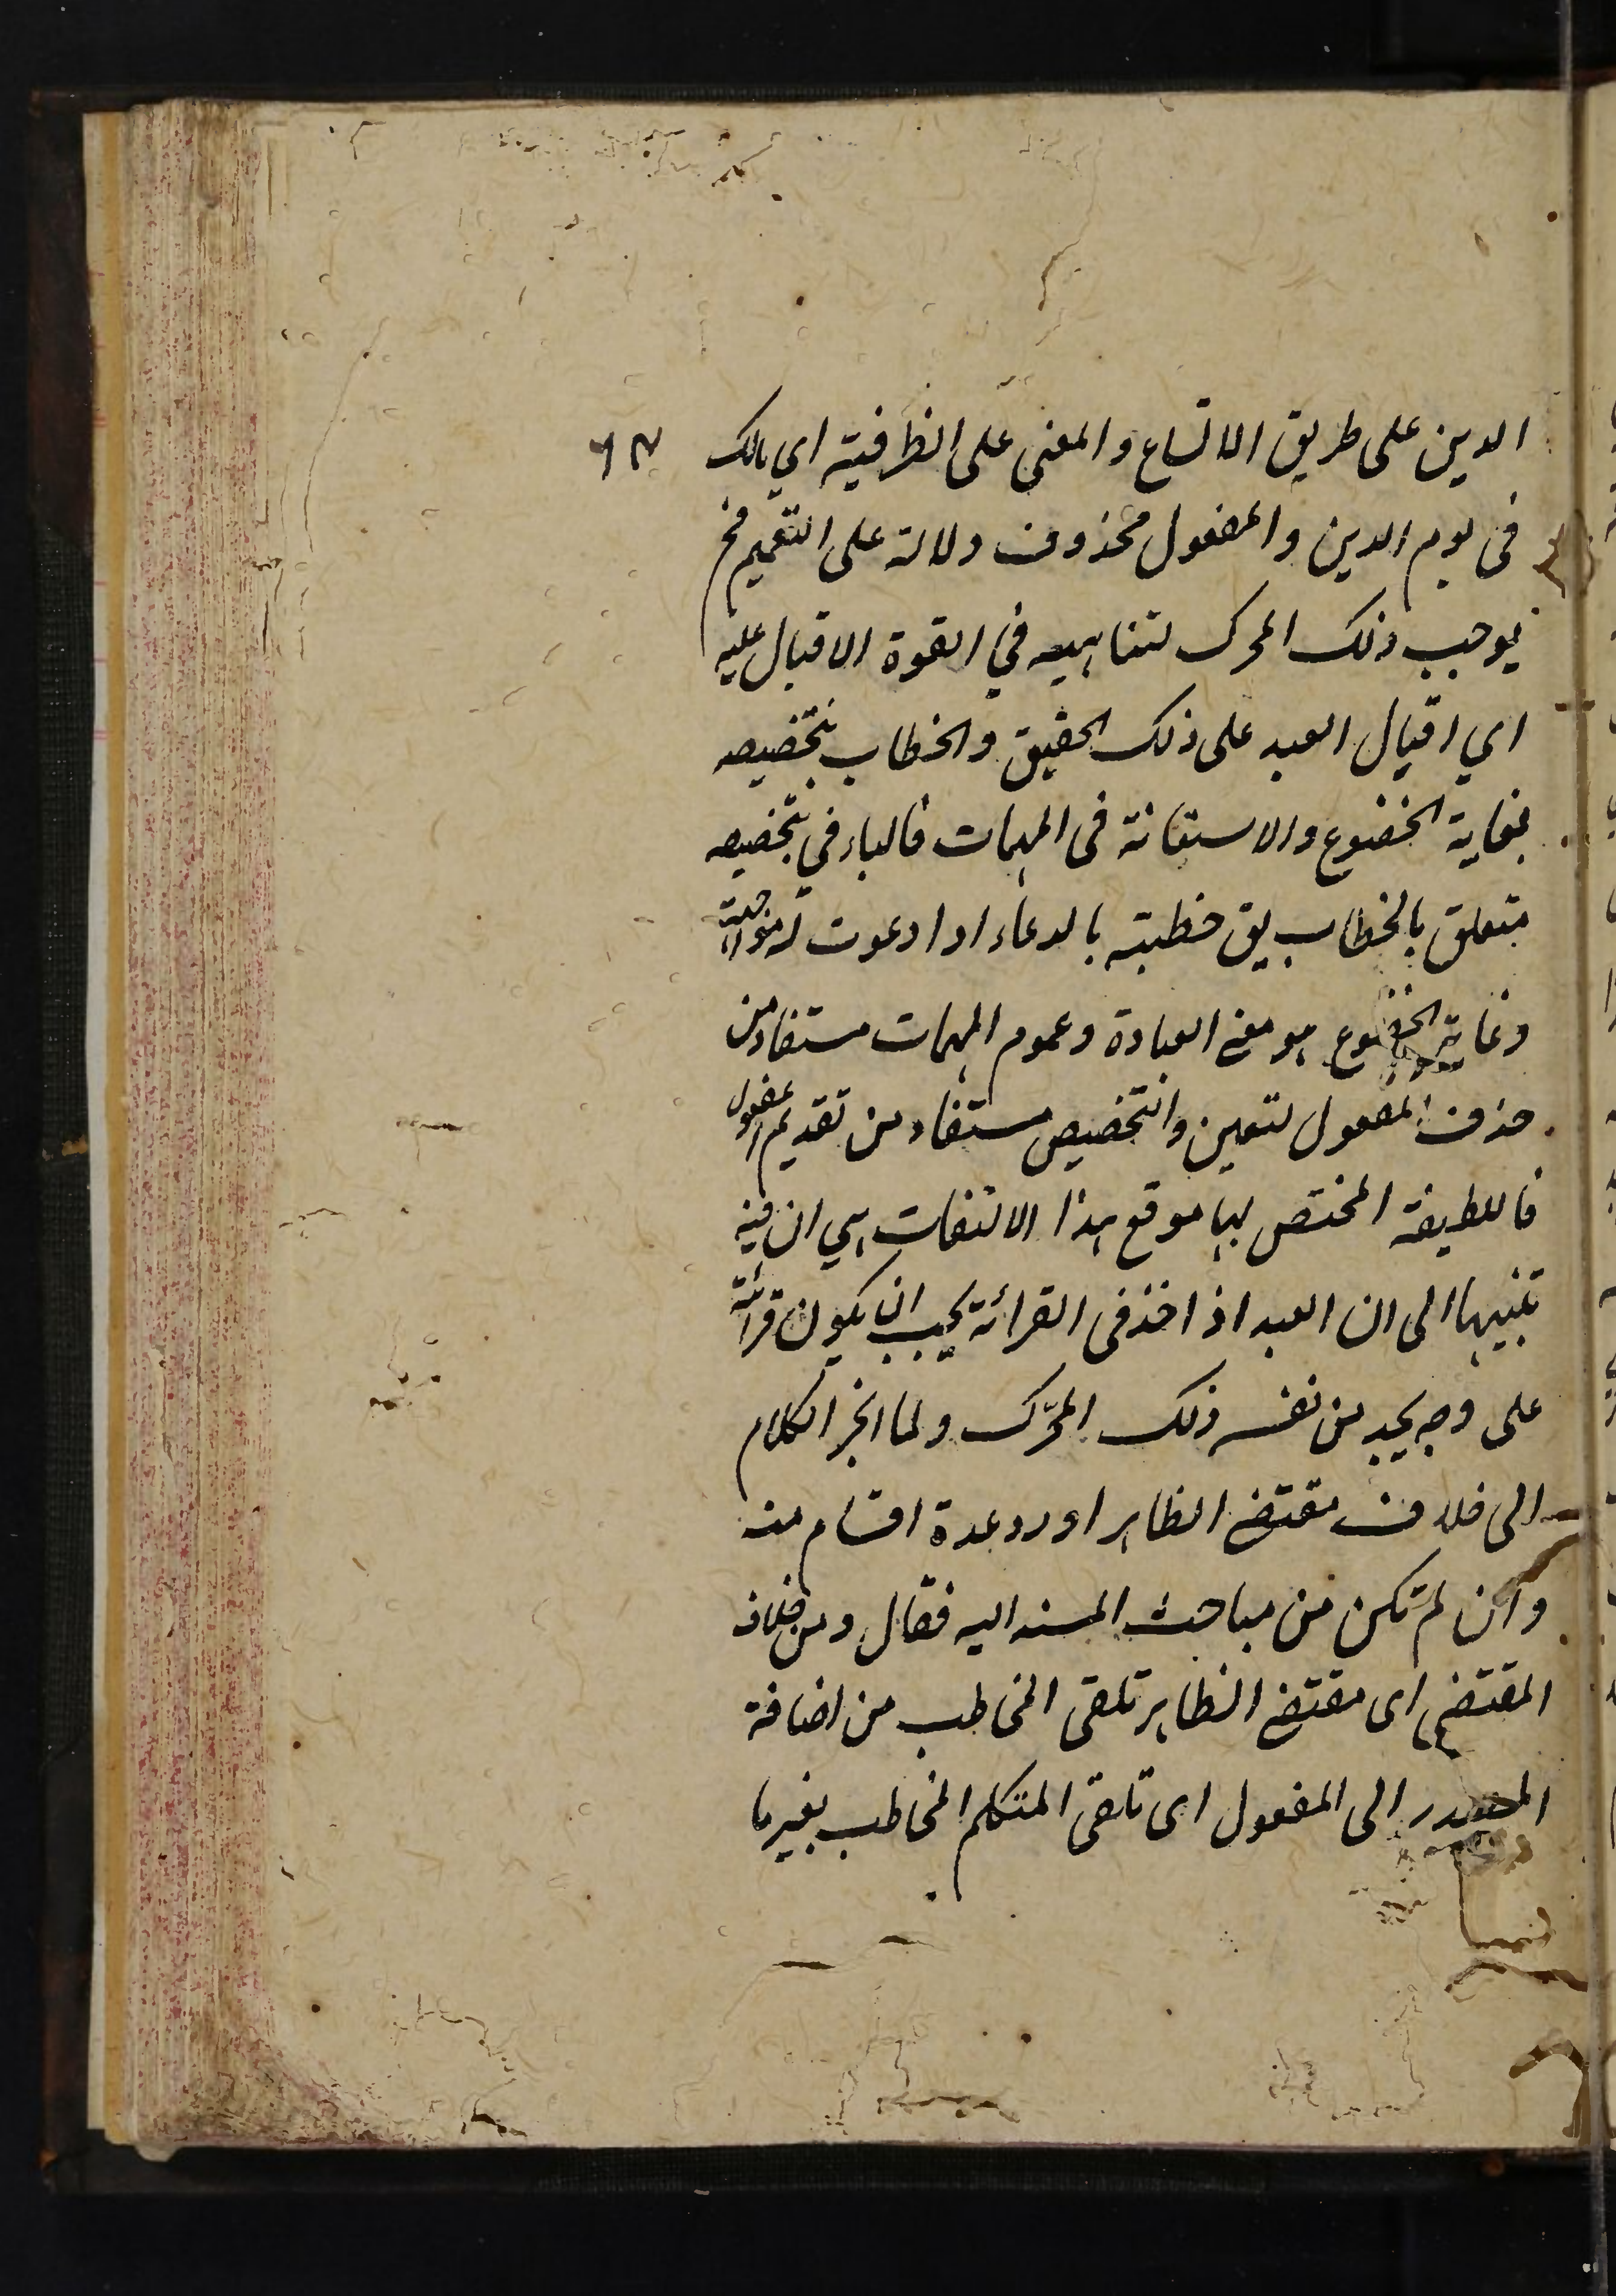 الدين على طريق الاتساع والمعنى على الظرفية اي مالك
في يوم الدين والمفعول محذوف دلالة على التعميم فح
يوجب ذلك المحرك لتناهيه في القوة الاقبال عليه
اي اقبال العبد على ذلك الحقيق والخطاب بتخصيصه
بغاية الخضوع والاستعانة في المهمات فالباء في بتخصيصه
متعلق بالخطاب يق خطبته بالدعاء اذا دعوت له مواجهة
وغاية الخضوع هو معنى العبادة وعموم المهمات مستفاد من
حذف المفعول لتعين والتخصيص مستفاد من تقديم المفعول
فاللطيفة المختص بها موقع هذا الالتفات هي ان فيه
تنبيها الى ان العبد اذا اخذ في القرائة يجب ان يكون قرائته
على وجه يجد من نفسه ذلك المحرّك ولما انجر الكلام
الى خلاف مقتضى الظاهر اورد عدة اقسام منه
وان لم تكن من مباحث المسند اليه فقال ومن خلاف
المقتضى اى مقتضى الظاهر تلقى المخاطب من اضافة
المصدر الى المفعول اى تلقى المتكلم المخاطب بغير ما